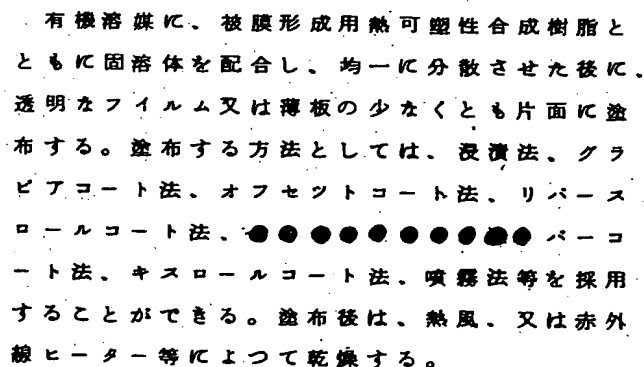 有機溶媒に、被膜形成用熱可塑性合成樹脂と
ともに固溶体を配合し、均一に分散させた後に、
透明なフイルム又は薄板の少なくとも片面に塗
布する。塗布する方法としては、浸漬法、グラ
ビアコート法、オフセツトコート法、リバース
ロールコート法、●●●●●●●●●●バーコ
ート法、キスロールコート法、噴霧法等を採用
することができる。塗布後は、熱風、又は赤外
線ヒーター等によつて乾燥する。